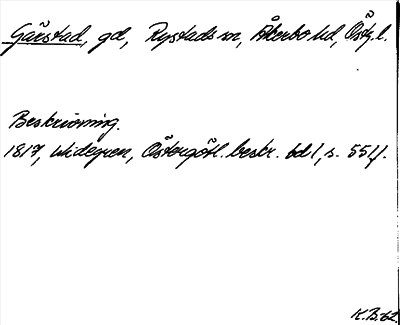 Gärstad, gd, Rystads sn, Åkerbo hd, Östg.l.
Beskrivning.
1817, Widegren, Östergötl. beskr. bd 1, s. 55 f.
K.B.-62.